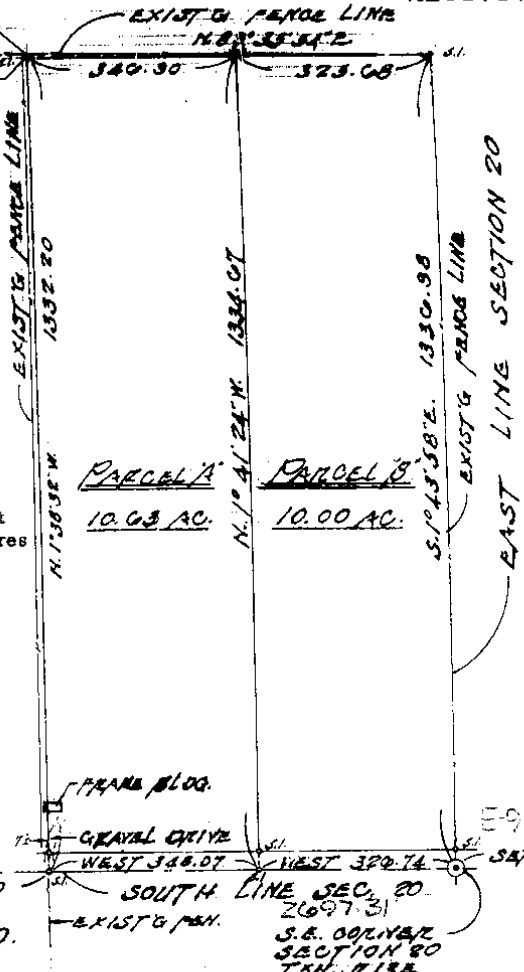 EXIST'G FENCE LINE
346.30
323.68
S.I.
EXIST'G FENCE LINE
1332.20
N. 1° 38' 32" W.
1334.67
N. 1° 41' 24" W.
1336.98
S. 1° 43' 58" E.
EXIST'G FENCE LINE
EAST LINE SECTION 20
PARCEL 'A'
10.63 AC.
PARCEL 'B'
10.00 AC.
res
FRAME BLDG.
GRAVEL DRIVE
S.I.
S.I.
E-9
WEST 346.07
WEST 326.74
SE
S.I.
SOUTH LINE SEC. 20
2697.31
EXIST'G FEN.
S.E. CORNER
SECTION 20